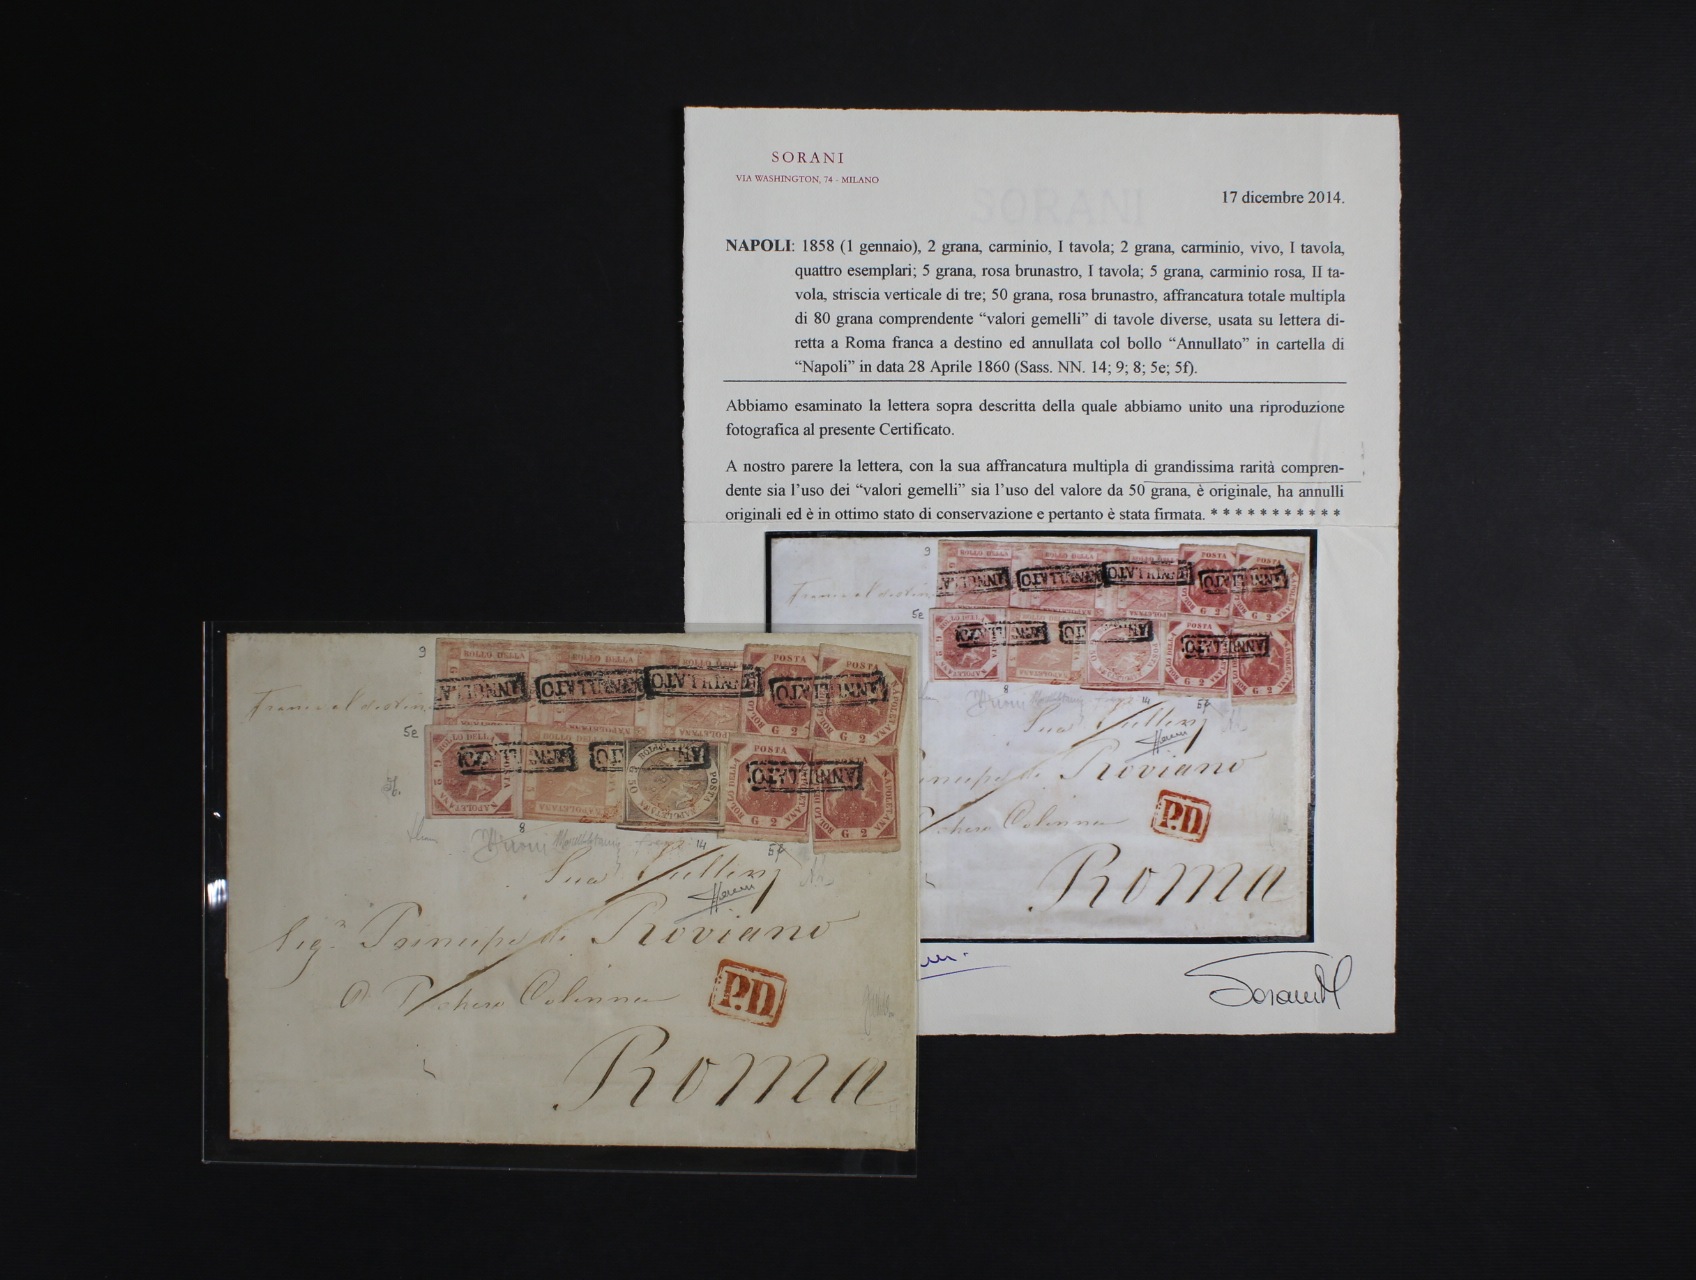 SORANI
VIA WASHINGTON, 74 - MILANO
SORANI
17 dicembre 2014.
NAPOLI: 1858 (1 gennaio), 2 grana, carminio, I tavola; 2 grana, carminio, vivo, I tavola,
quattro esemplari; 5 grana, rosa brunastro, I tavola; 5 grana, carminio rosa, II ta-
vola, striscia verticale di tre; 50 grana, rosa brunastro, affrancatura totale multipla
di 80 grana comprendente “valori gemelli” di tavole diverse, usata su lettera di-
retta a Roma franca a destino ed annullata col bollo “Annullato” in cartella di
“Napoli” in data 28 Aprile 1860 (Sass. NN. 14; 9; 8; 5e; 5f).
Abbiamo esaminato la lettera sopra descritta della quale abbiamo unito una riproduzione
fotografica al presente Certificato.
A nostro parere la lettera, con la sua affrancatura multipla di grandissima rarità compren-
dente sia l’uso dei “valori gemelli” sia l’uso del valore da 50 grana, è originale, ha annulli
originali ed è in ottimo stato di conservazione e pertanto è stata firmata. * * * * * * * * * * *
9
ANNULLATO ANNULLATO ANNULLATO
POSTA POSTA
G 2 G 2
5e
8
14
5f
Roviano
Colonna
P.D
Roma
Sorani
9
BOLLO DELLA BOLLO DELLA BOLLO DELLA POSTA POSTA
ANNULLATO ANNULLATO ANNULLATO
BOLLO DELLA G 2 NAPOLETANA G 2
5e
BOLLO DELLA POSTA NAPOLETANA G 5
POSTA NAPOLETANA G 50
POSTA BOLLO DELLA G 2 NAPOLETANA G 2
ANNULLATO
8
14
5f
Sua Eccellenza
Sigr Principe di Roviano
Colonna
P.D
Roma